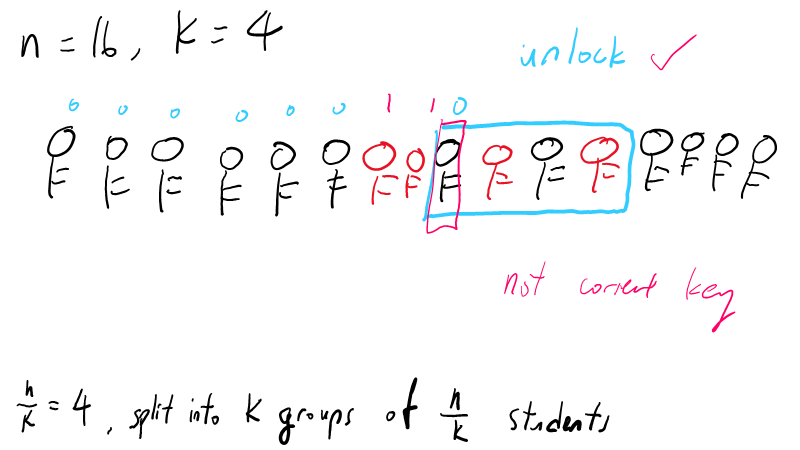 n = 16, k = 4
unlock ✓
0 0 0 0 0 0 1 1 0
not correct key
n/k = 4, split into k groups of n/k students